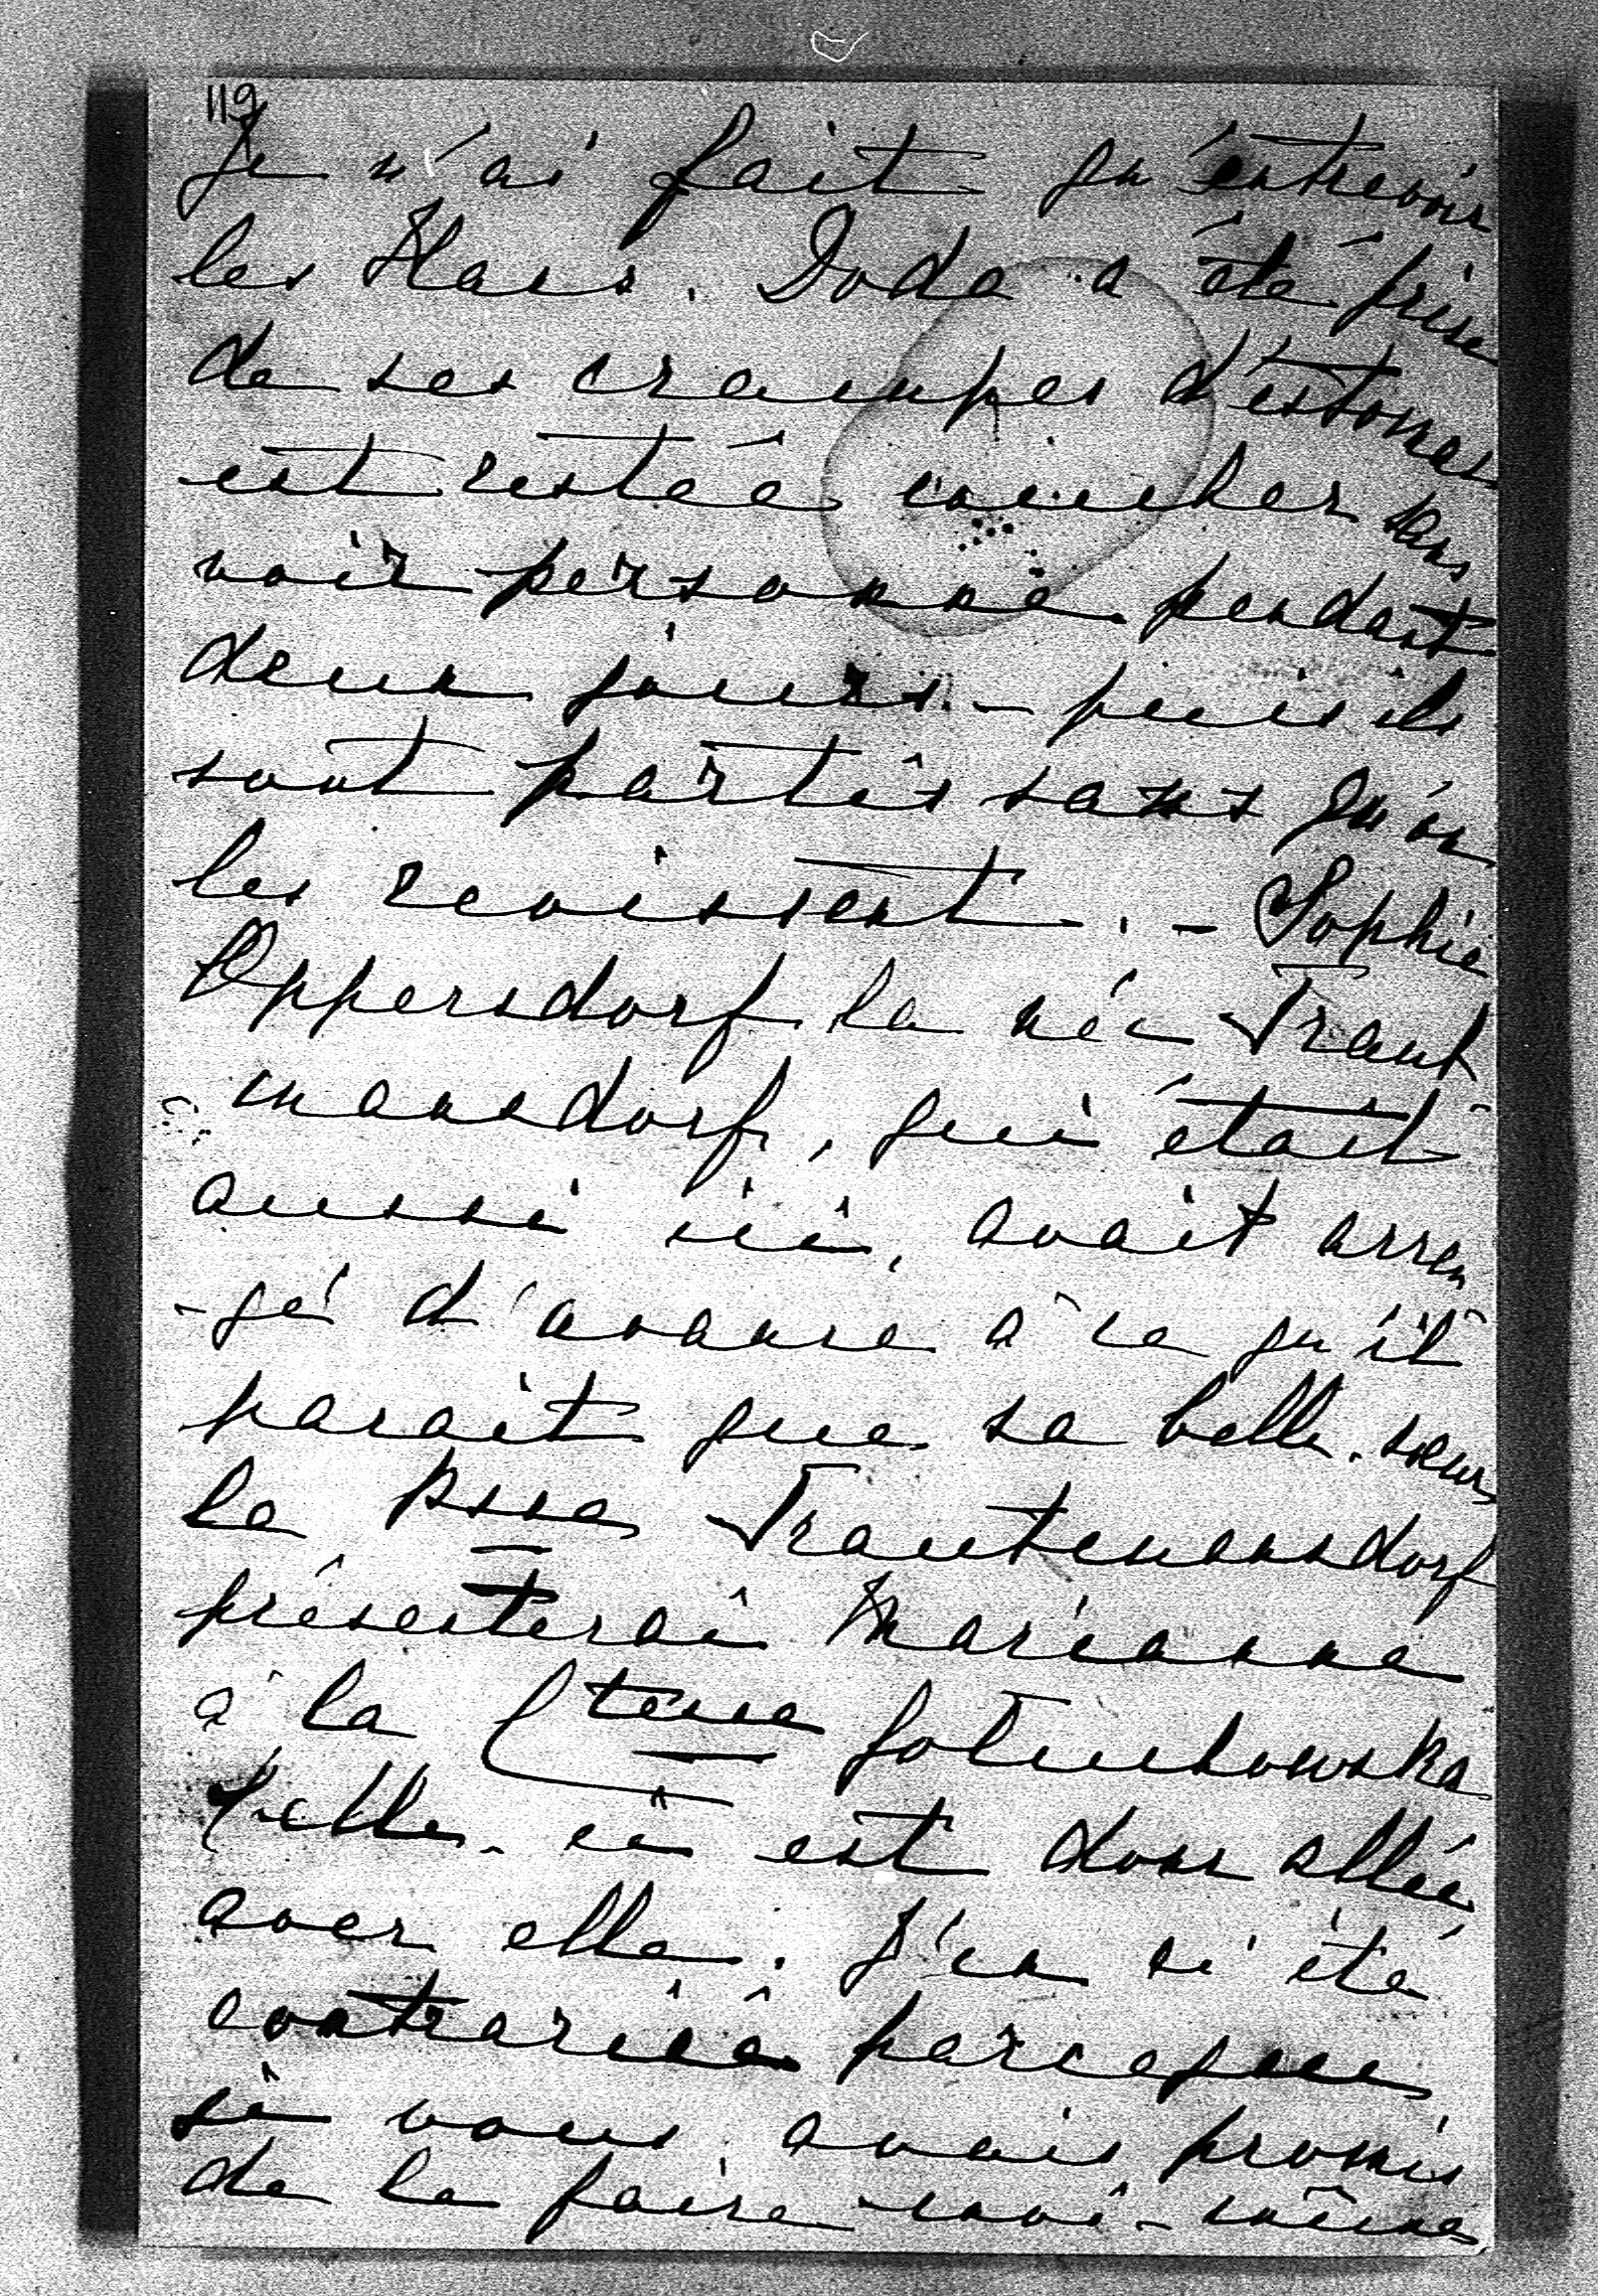 119
Je n'ai fait qu'entrevoir
les Haus. Doda a été prise
de ses crampes d'estomac
est restée coucher sans
voir personne pendant
deux jours. – puis ils
sont partis sans qu'on
les revissent. – Sophie
Oppersdorf la née Traut
mansdorf, qui était
aussi ici, avait arran
-gé d'avance à ce qu'il
parait que sa belle-sœur
la Psse Trautmansdorf
présenterai Marianne
à la Ctesse Goluchowska
Celle-ci est donc allée
avec elle. J'en ai été
contrariée parceque
je vous avais promis
de le faire moi-même,